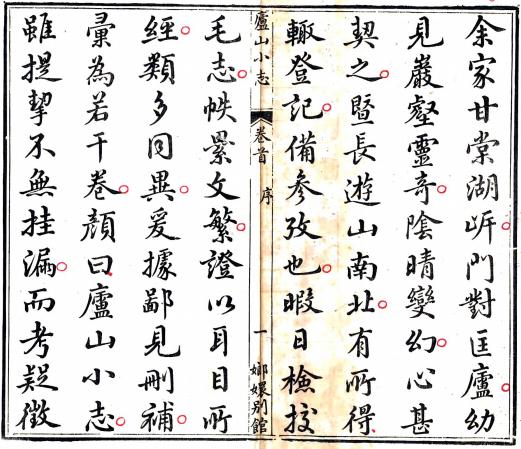 余家甘棠湖㟁門對匡廬幼
見巖壑靈奇陰晴變幻心甚
契之曁長遊山南北有所得
輙登記備參攷也暇日檢挍
廬山小志 卷首 序 一 嫏嬛别館
毛志帙纍文繁證以耳目所
經類多同異爰據鄙見刪補
彚為若干卷顏曰廬山小志
雖提挈不無挂漏而考疑徵